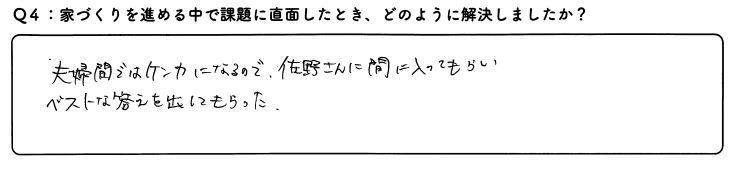 Q4：家づくりを進める中で課題に直面したとき、どのように解決しましたか？
夫婦間ではケンカになるので、佐野さんに間に入ってもらい
ベストな答えを出してもらった．